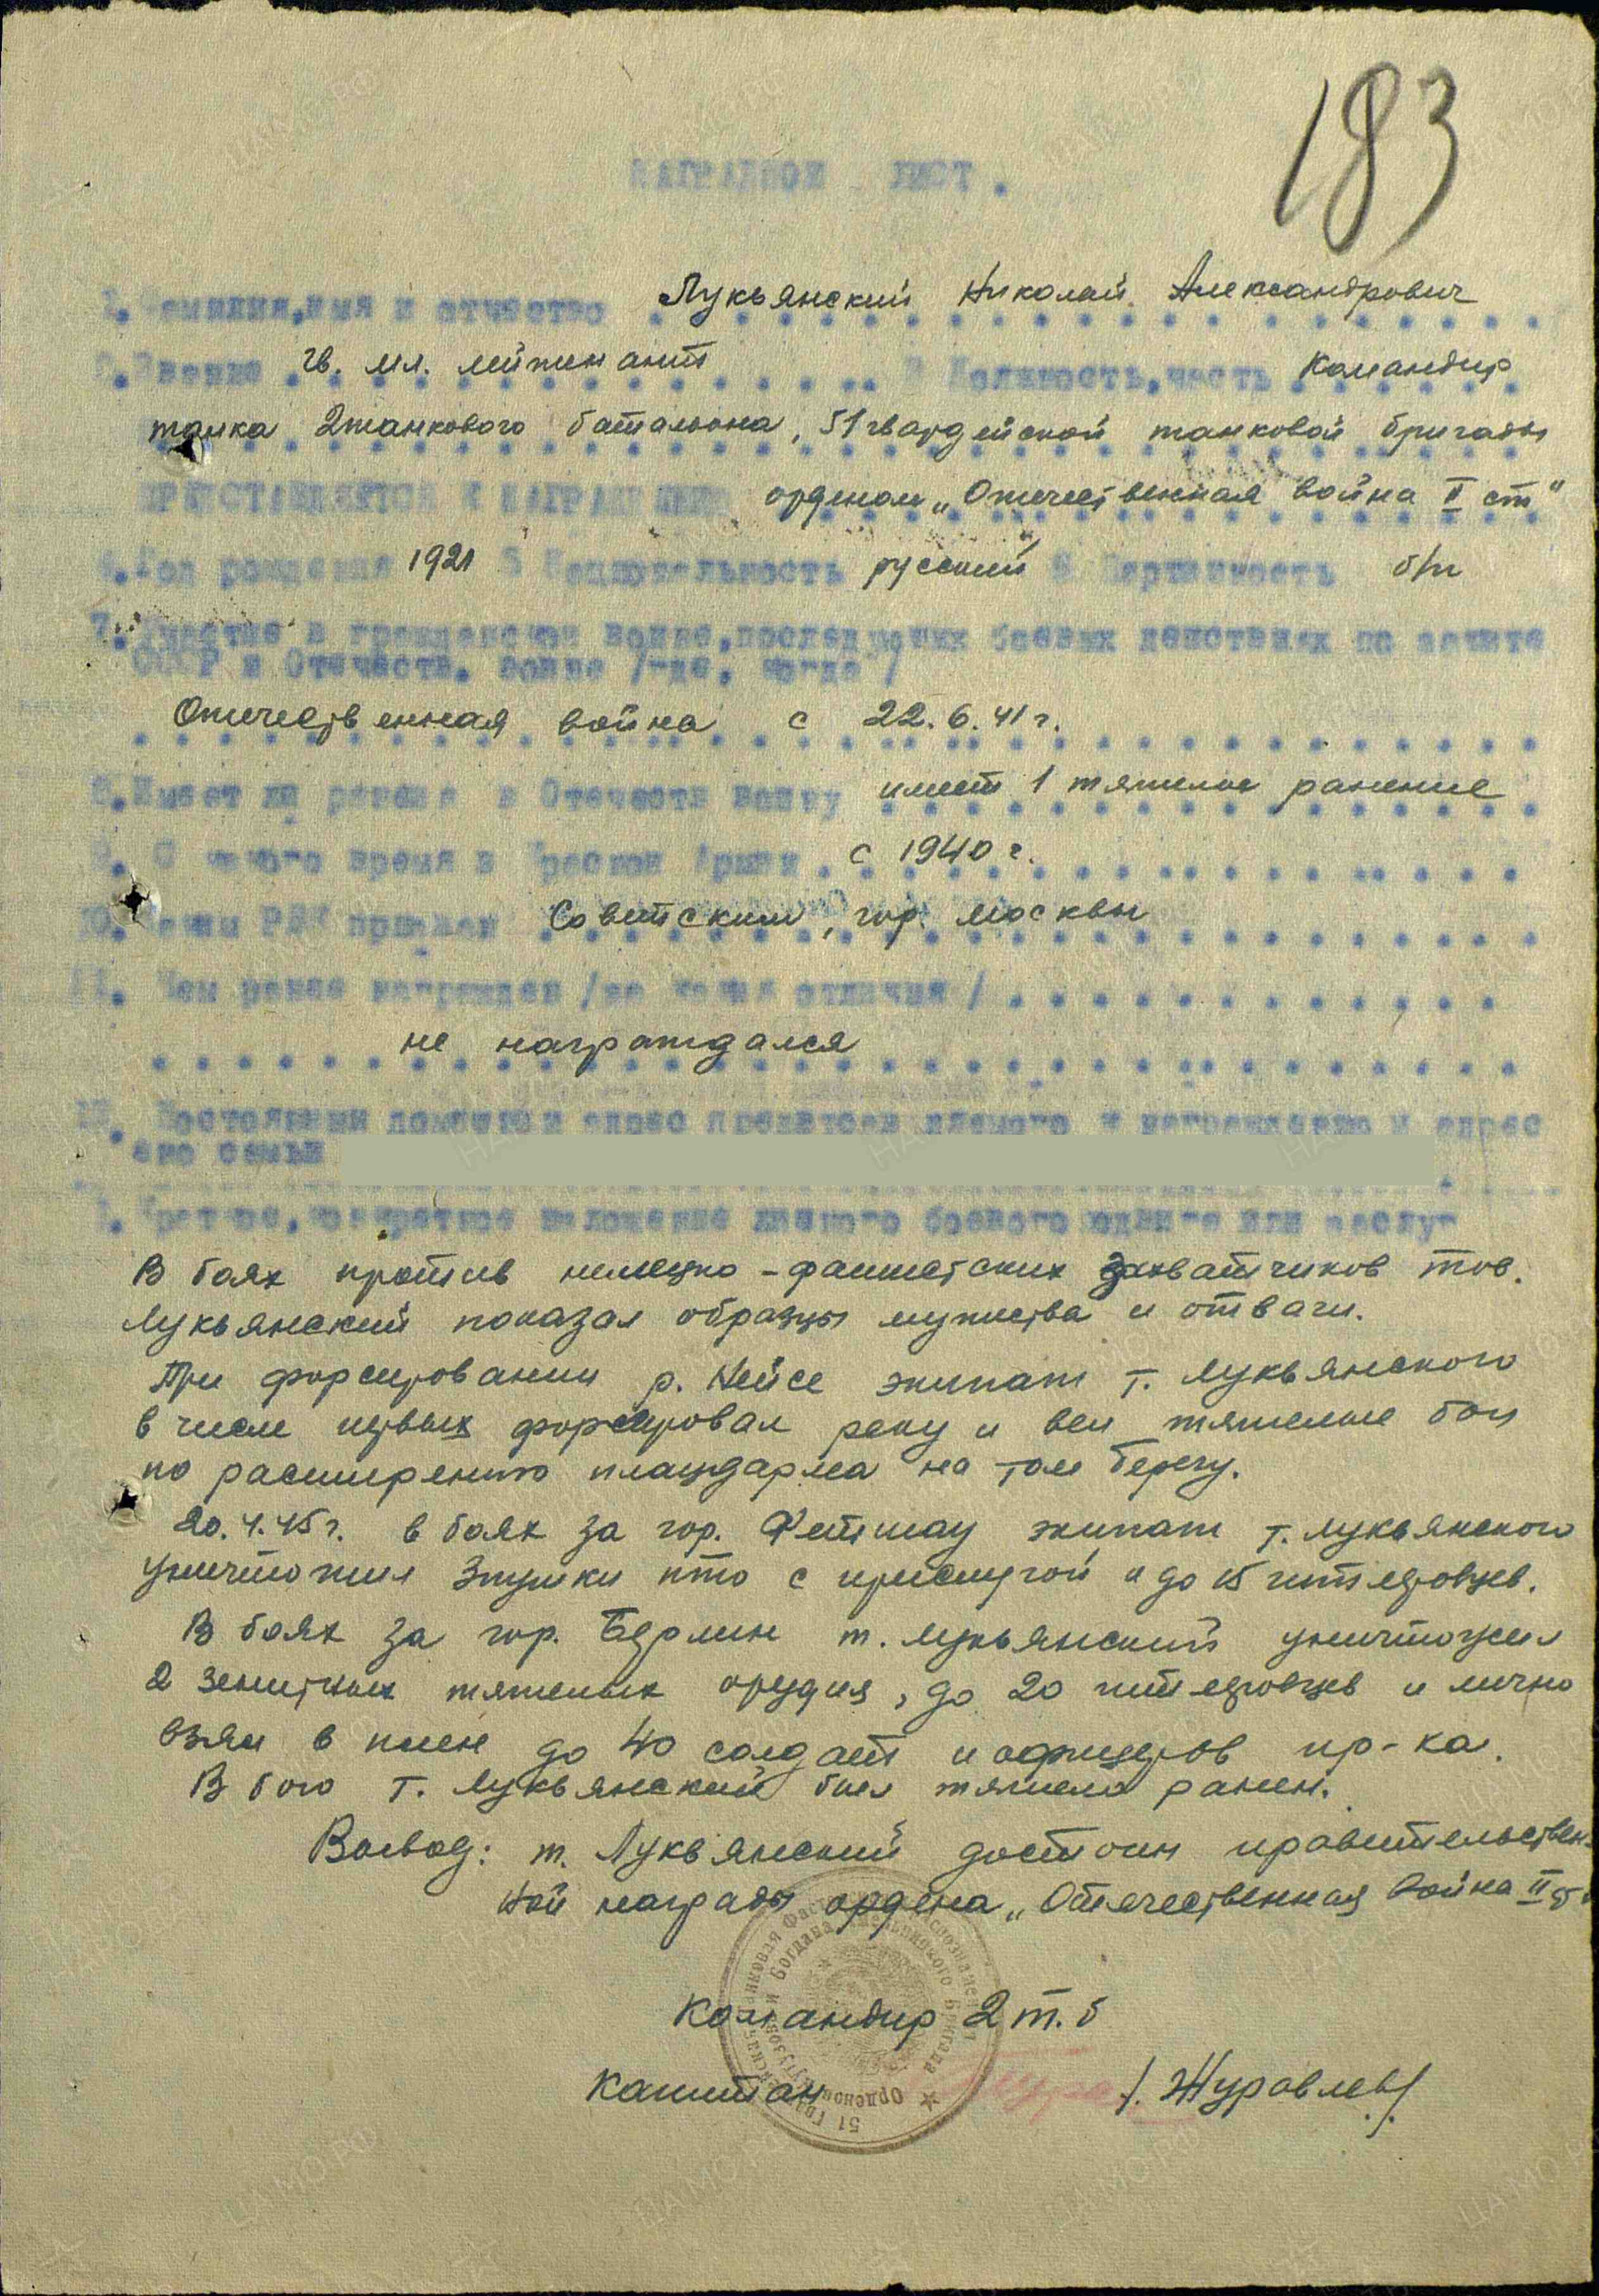 183
НАГРАДНОЙ ЛИСТ.
1. Фамилия, имя и отчество Лукьянский Николай Александрович
2. Звание гв. мл. лейтенант 3 Должность, часть Командир
танка 2 танкового батальона, 51 гвардейской танковой бригады
ПРЕДСТАВЛЯЕТСЯ К НАГРАЖДЕНИЮ орденом „Отечественная война II ст"
4. Год рождения 1921 5 Национальность русский 6 Партийность б/п
7. Участие в гражданской войне, последующих боевых действиях по защите
СССР и Отечеств. войне /где, когда/
Отечественная война с 22.6.41 г.
8. Имеет ли ранения в Отечеств войну имеет 1 тяжелое ранение
9. С какого время в Красной Армии с 1940 г.
10. Каким РВК призван Советским, гор. Москвы
11. Чем ранее награжден /за какие отличия/
не награждался
12. Постоянный домашний адрес представляемого к награждению и адрес
его семьи
1. Краткое, конкретное изложение личного боевого подвига или заслуг
В боях против немецко-фашистских захватчиков тов.
Лукьянский показал образцы мужества и отваги.
При форсировании р. Нейсе экипаж т. Лукьянского
в числе первых форсировал реку и вел тяжелые бои
по расширению плацдарма на том берегу.
20.4.45 г. в боях за гор. Фетшау экипаж т. Лукьянского
уничтожил 3 пушки пто с прислугой и до 15 гитлеровцев.
В боях за гор. Берлин т. Лукьянский уничтожил
2 зенитных тяжелых орудия, до 20 гитлеровцев и лично
взял в плен до 40 солдат и офицеров пр-ка.
В бою т. Лукьянский был тяжело ранен.
Вывод: т. Лукьянский достоин правительствен-
ной награды ордена „Отечественная война II ст
Командир 2 т. б
Капитан /. Журавлев/.
51 Гвардейская Танковая Фастовская Краснознаменная
Орденов Кутузова и Богдана Хмельницкого Бригада